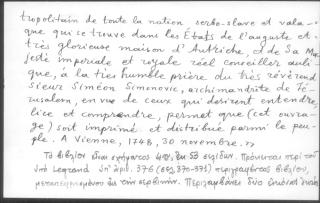 tropolitain de toute la nation serbo-slave et vala-
que qui se trouve dans les États de l'auguste et
très glorieuse maison d'Autriche, et de Sa Ma-
jesté impériale et royale réel conseiller auli-
que, à la très humble prière du très révérend
sieur Siméon Simonovic, archimandrite de Jé-
rusalem, en vue de ceux qui desirent entendre,
lire et comprendre, permet que (cet ouvra-
ge) soit imprimé et distribué parmi le peu-
ple. A Vienne, 1748, 30 novembre. »
Τὸ βιβλίον εἶναι σχήματος 4ου, ἐκ 50 σελίδων. Πρόκειται περὶ τοῦ
ὑπὸ Legrand ὑπ' ἀριθ. 376 (σελ. 370-371) περιγραφέντος βιβλίου,
μεταπεφρασμένου ἐκ τῶν σερβικῶν. Περιλαμβάνει δύο εἰκόνας